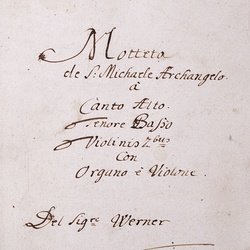 Motteto
de S: Michaele Archangelo.
à
Canto Alto.
Tenore Basso
Violinis 2bus
Con
Organo è Violone.
Del Sigre Werner